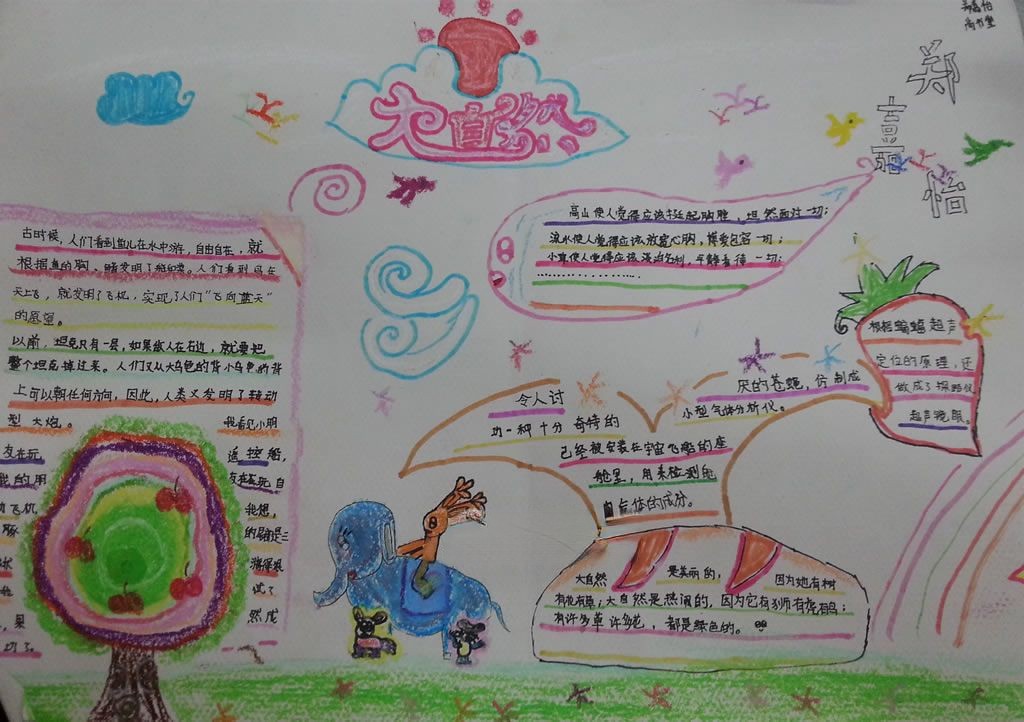 大自然
郑
嘉
怡
郑嘉怡
尚书堂
古时候，人们看到鱼儿在水中游，自由自在，就
根据鱼的胸、鳍发明了
人们看到鸟在
天上飞，就发明了飞机，实现了人们“飞向蓝天”
的愿望。
以前，坦克只有一层，如果敌人在右边，就要把
整个坦克掉过来。人们又从大乌龟的背小乌龟的背
上可以朝任何方向，因此，人类又发明了转动
型大炮。
我看见小明
友在玩
遥控船，
我的用
友在玩自
动飞机，
我想，
的
游得很
然成
，果
切了。
高山使人觉得应该挺起胸膛，坦然面对一切；
流水使人觉得应该放宽心胸，博爱包容一切；
小草使人觉得应该淡泊名利，平静看待一切；
………………
根据蝙蝠超声
定位的原理，还
做成了探路仪
超声眼镜。
令人讨
厌的苍蝇，仿制成
功一种十分奇特的
小型气体分析仪。
已经被安装在宇宙飞船的座
舱里，用来检测舱
内气体的成分。
大自然是美丽的，因为她有树
有花有草；大自然是热闹的，因为它有狮有虎有鸟；
有许多草许多花，都是绿色的。